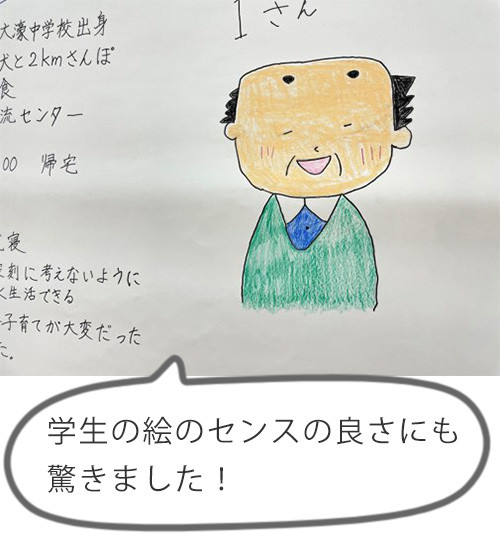 Iさん
大濠中学校出身
犬と2kmさんぽ
食
流センター
00 帰宅
寝
刻に考えないように
生活できる
子育てが大変だった
た。
学生の絵のセンスの良さにも
驚きました！